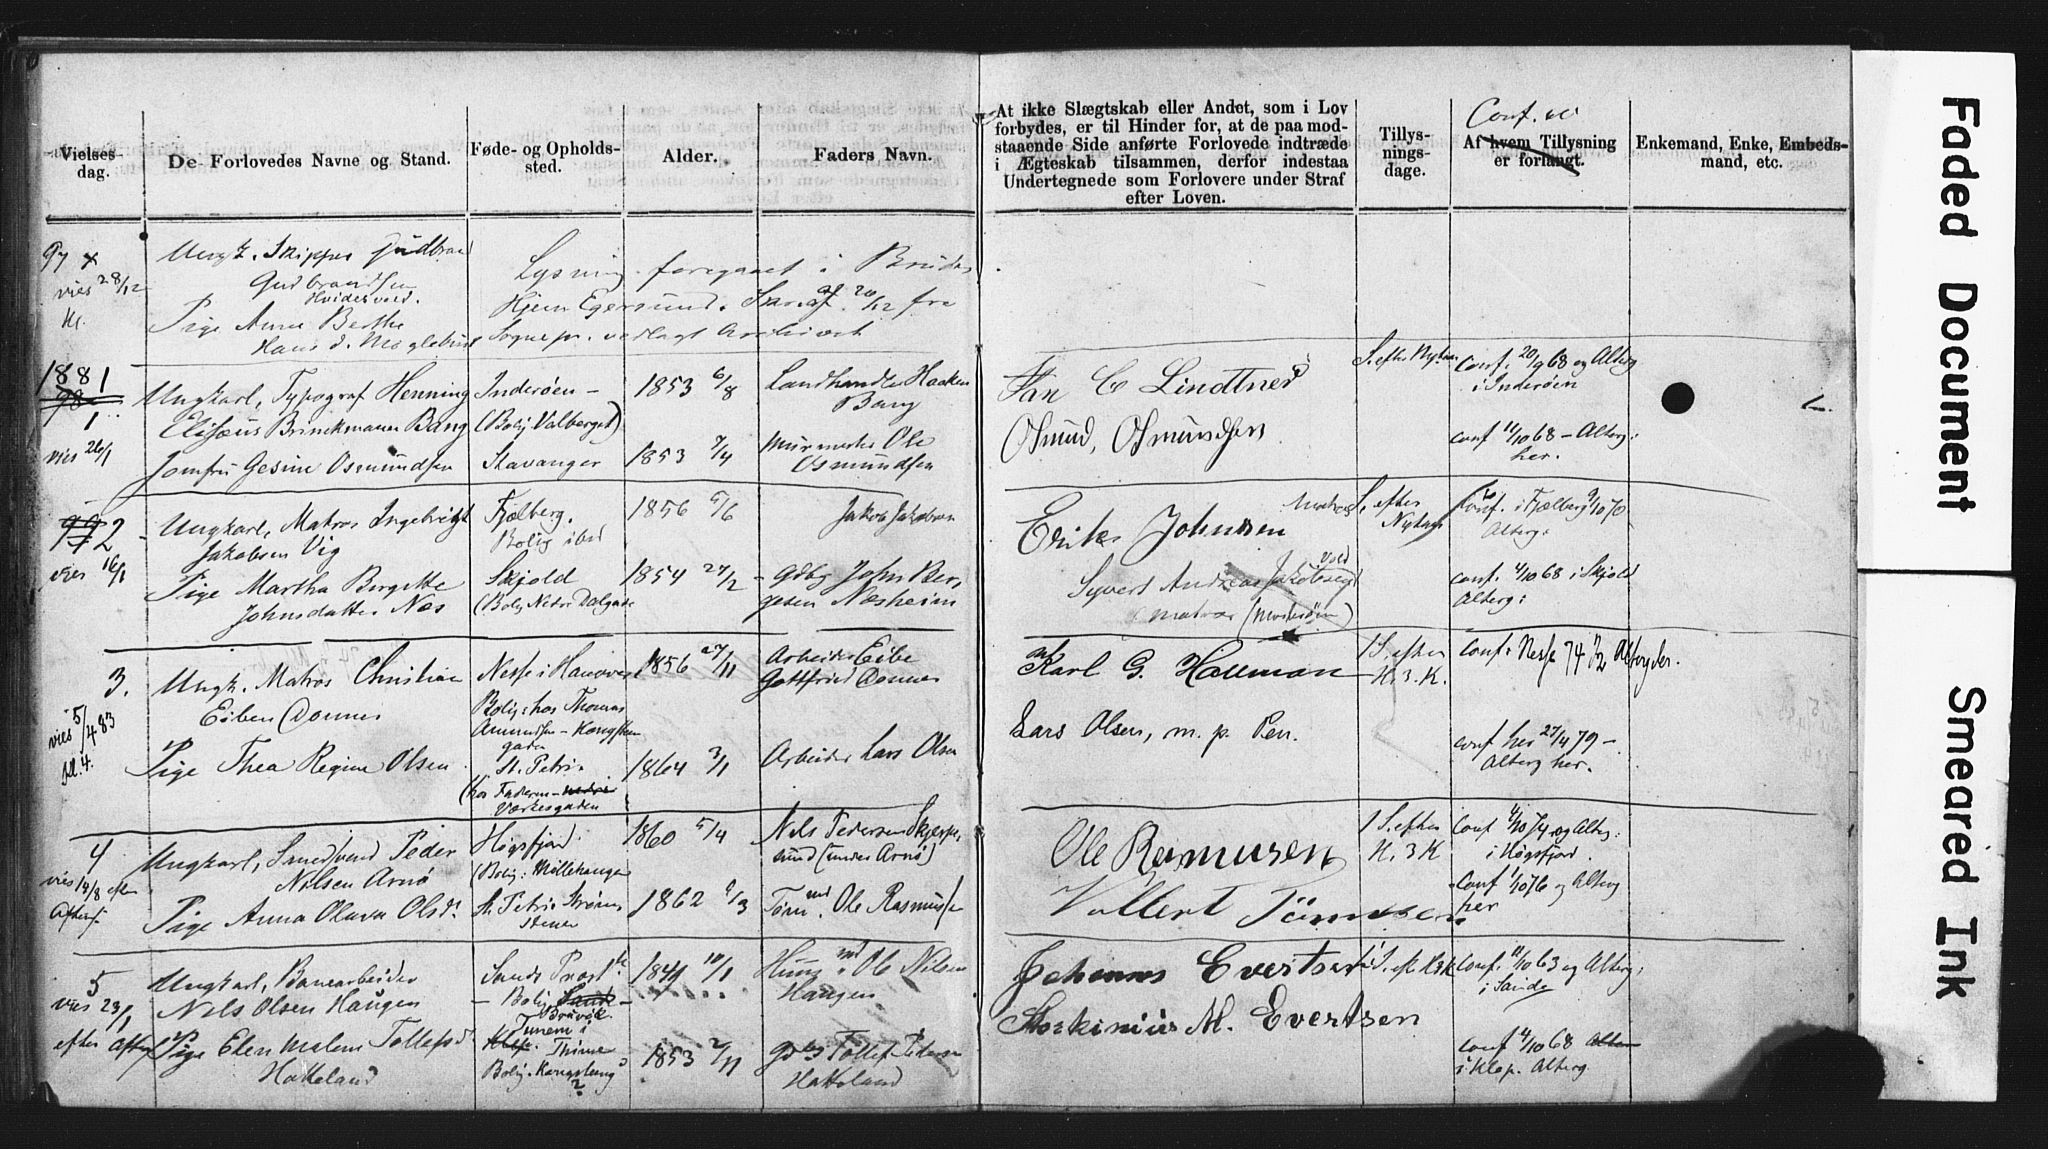 Vielses-
dag.
De Forlovedes Navne og Stand.
Føde- og Opholds-
sted.
Alder.
Faders Navn.
97 x
vies 28/12
Kl.
Ungk. Skipper Gudbrand
Gudbrandsen
Hvidesvord.
Pige Anne Berthe
Hans d. Møglebust
Lysning foregaaet i Brudens
Hjem Egersund. Skr. af 20/12 fra
Sognepr. vedlagt Archivet
1881
98
1
vies 26/1
Ungkarl, Typograf Henning
Elisæus Brinckmann Bang
Jomfru Gesine Osmundsen
Inderøen -
(Bolig Valberget)
Stavanger
1853 6/8
1853 7/4
Landhandler Haaken
Bang
Murmester Ole
Osmundsen
99 2
vies 16/1
Ungkarl, Matros Ingebrigt
Jakobsen Vig
Pige Martha Bergitte
Johnsdatter Næs
Fjelberg.
Bolig ibid
Skjold
(Bolig Nedre Dalgade
1856 5/6
1854 27/2
Jakob Jakobsen
- Gdbr John Ber-
gesen Næsheim
3.
vies 5/4 83
fol. 4.
Ungk. Matros Christian
Eiben Donner
Pige Thea Regine Olsen
Nesse i Hanover
Bolig: hos Thomas
Amundsen - Kongsteen
gaden
St. Petri.
(hos Faderen - nedre
Værksgaden
1856 27/11
1864 3/1
Arbeider Eibe
Gottfried Donner
Arbeider Lars Olsen
4
vies 14/8 efter
Aftens.
Ungkarl, Smedsvend Peder
Nilsen Arnø
Pige Anna Olava Olsd.
Høgsfjord.
(Bolig: Møllehaugen
St. Petri Strøms
stenen
1860 5/4
1862 9/3
Nils Pedersen Skjerpe,
sund (under Arnø)
Tømmd. Ole Rasmussen
5
vies 23/1
efter Aftens
Ungkarl, Banearbeider
Nils Olsen Haugen
Pige Elen Malene Tollefsd.
Hakeland
Sands Præst
- Bolig Sande -
Bruvik.
Tunem i
Klep. Thime
Bolig. Kongsteng
2
1841 10/1
1853 2/11
Huusmd. Ole Nilsen
Haugen
Gdbr Tollef Peders
Hakeland
At ikke Slægtskab eller Andet, som i Lov
forbydes, er til Hinder for, at de paa mod-
staaende Side anførte Forlovede indtræde
i Ægteskab tilsammen, derfor indestaa
Undertegnede som Forlovere under Straf
efter Loven.
Tillys-
nings-
dage.
Conf. o
Af hvem Tillysning
er forlangt.
Enkemand, Enke, Embeds-
mand, etc.
Jan C Lindtner
Osmund, Osmundsen
S. efter Nytaar
Conf. 20/9 68 og Alterg
i Inderøen
conf 11/10 68 - Alterg:
her.
Erik Johnsen
Matros
Syvert Andreas Jakobsen
Matros (Mosterøen)
S. efter
Nytaar
Conf. i Fjælberg 9/10 70
Alterg:
conf. 4/10 68 i Skjold
Alterg:
Karl G. Hallman
Lars Olsen, m. p. Pen.
1 S. efter
H. 3. K.
Conf. Nesse 74 Altergdes.
conf her 27/4 79 -
Alterg her.
Ole Rasmusen
Vallert Tønnesen
1 S. efter
H. 3 K
Conf 4/10 74 og Alterg:
i Høgsfjord.
Conf 1/10 76 og Alterg
her
Johannes Evertsen
Storkinius M. Evertsen
1 S. eft. H 3 K
Conf. 11/10 63 og Alterg:
i Sande
conf 4/10 68 Alter
i Klep. Alterg.
Faded Document
Smeared Ink